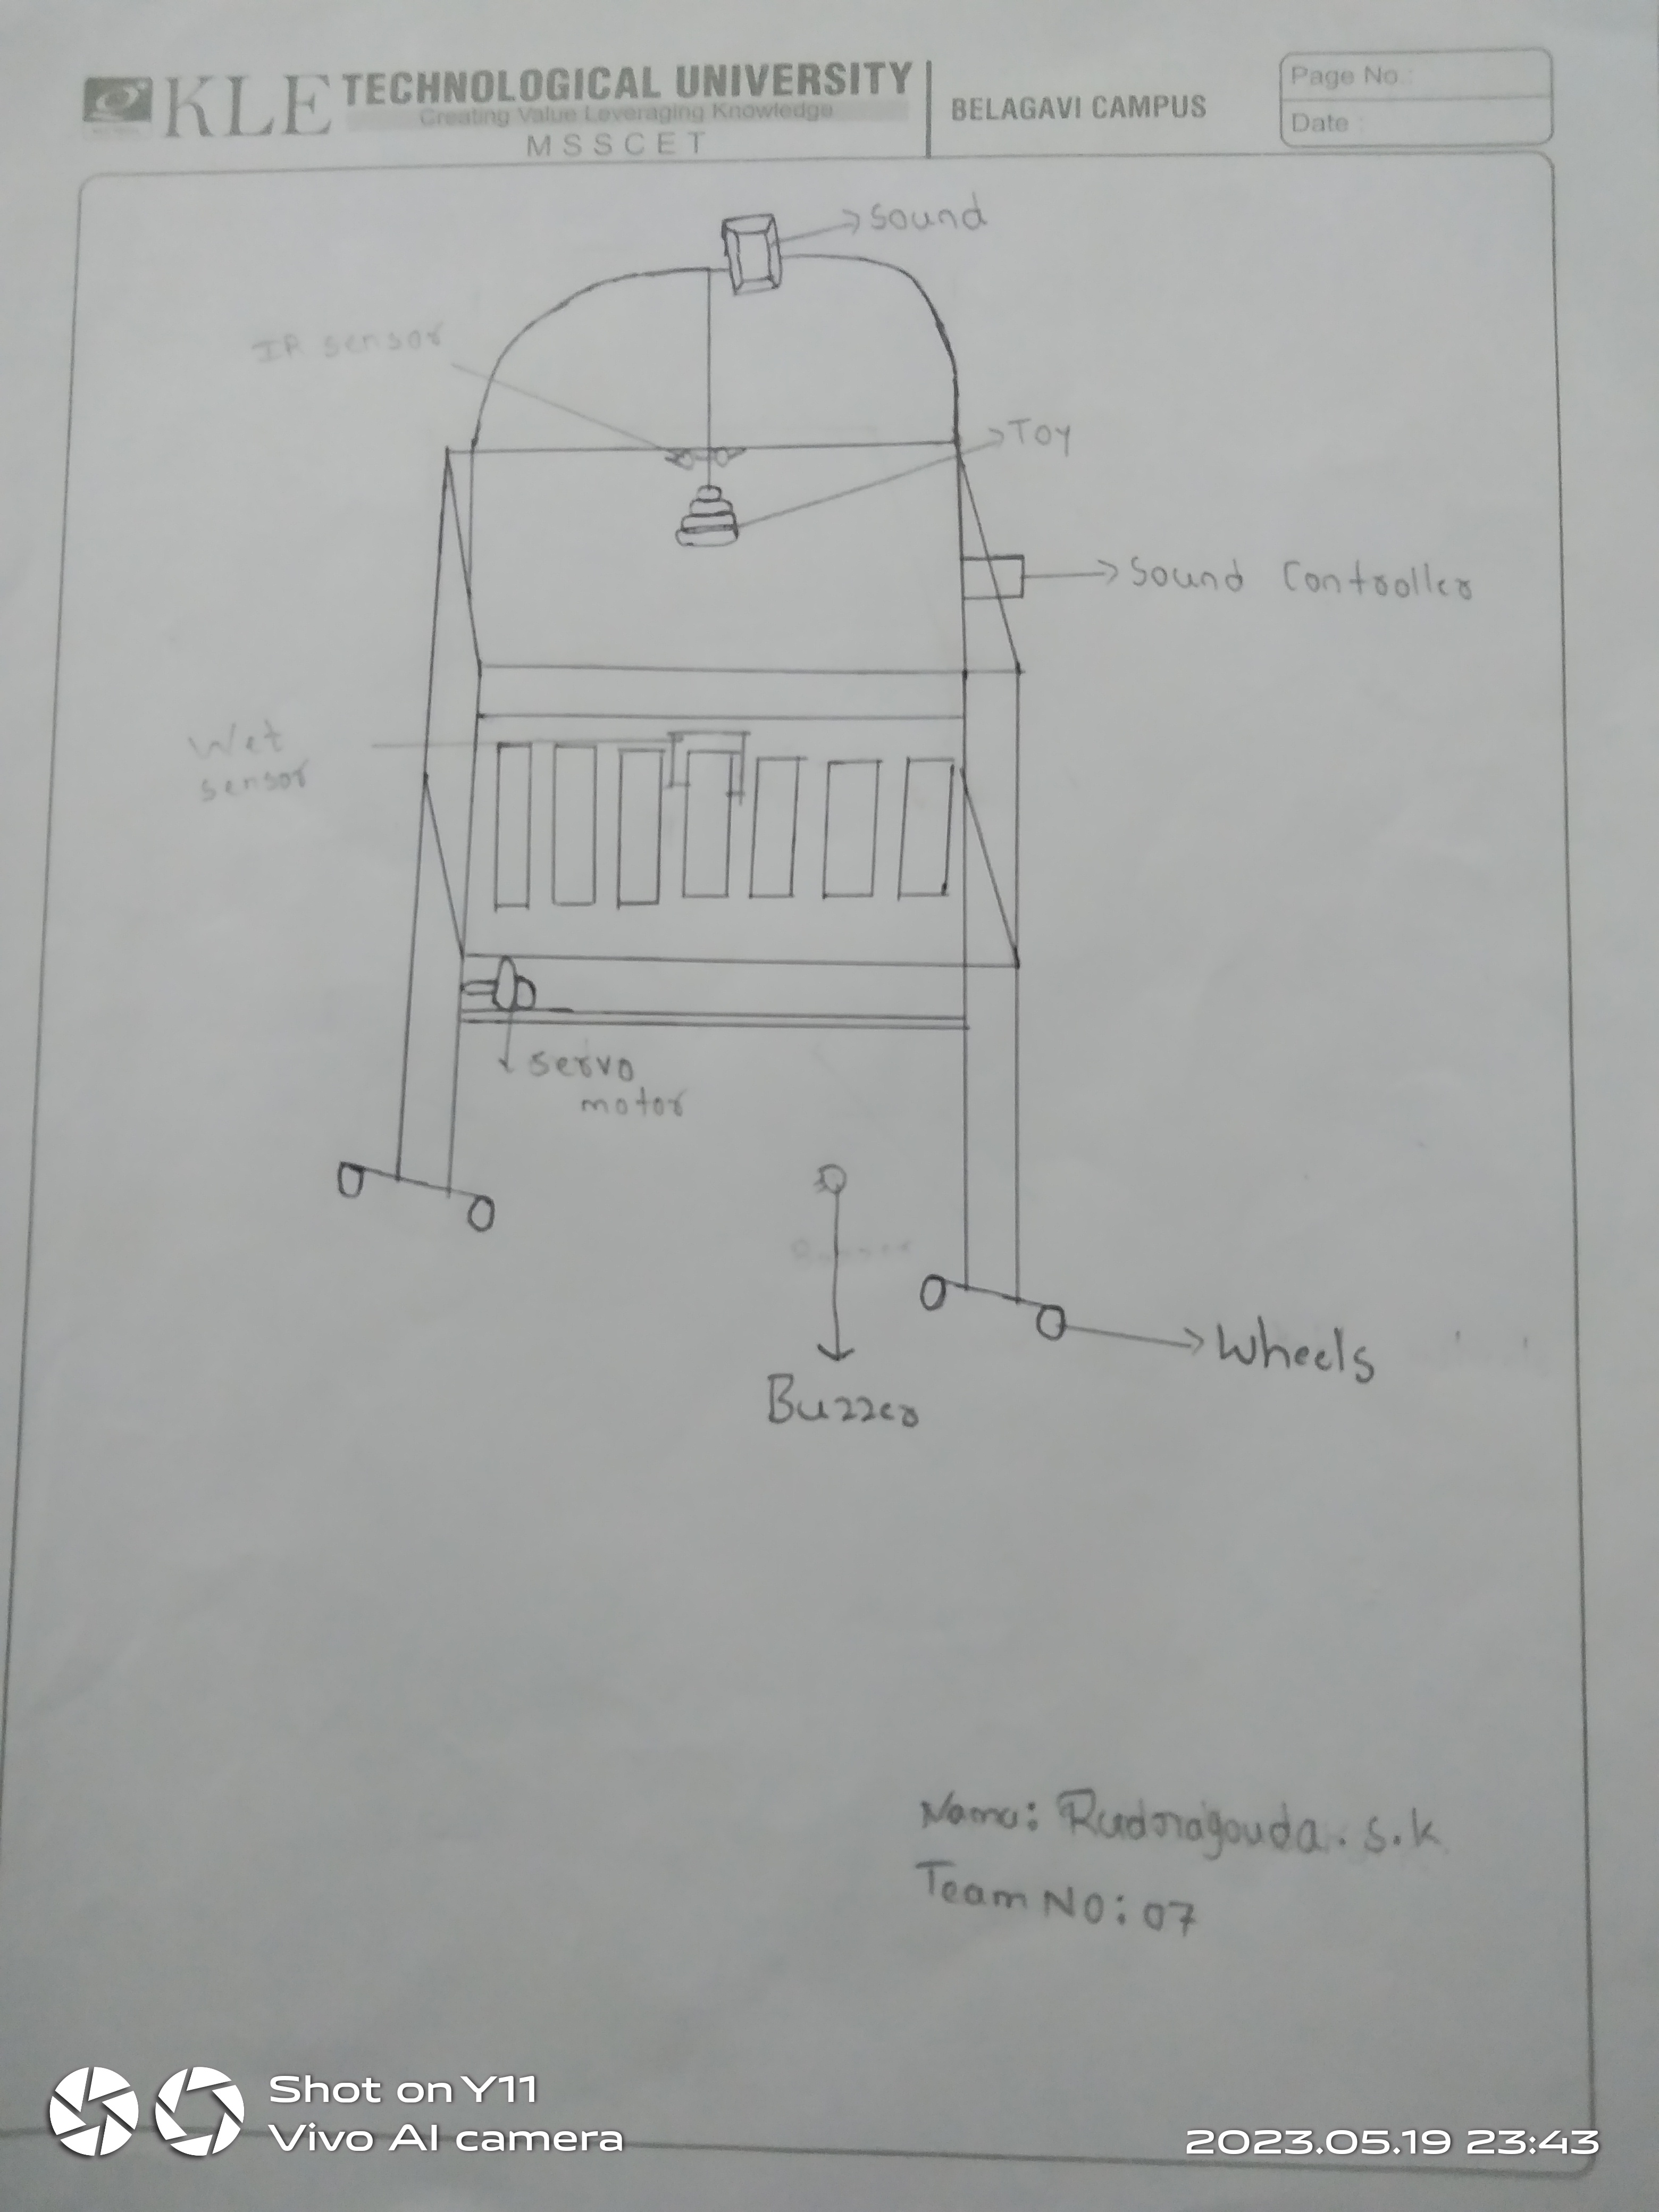 KLE TECHNOLOGICAL UNIVERSITY
Creating Value Leveraging Knowledge
MSSCET
BELAGAVI CAMPUS
Page No.:
Date :
Sound
IR sensor
Toy
Sound Controller
Wet
sensor
servo
motor
Buzzer
Wheels
Name: Rudragouda. s.k
Team NO: 07
Shot on Y11
Vivo AI camera
2023.05.19 23:43